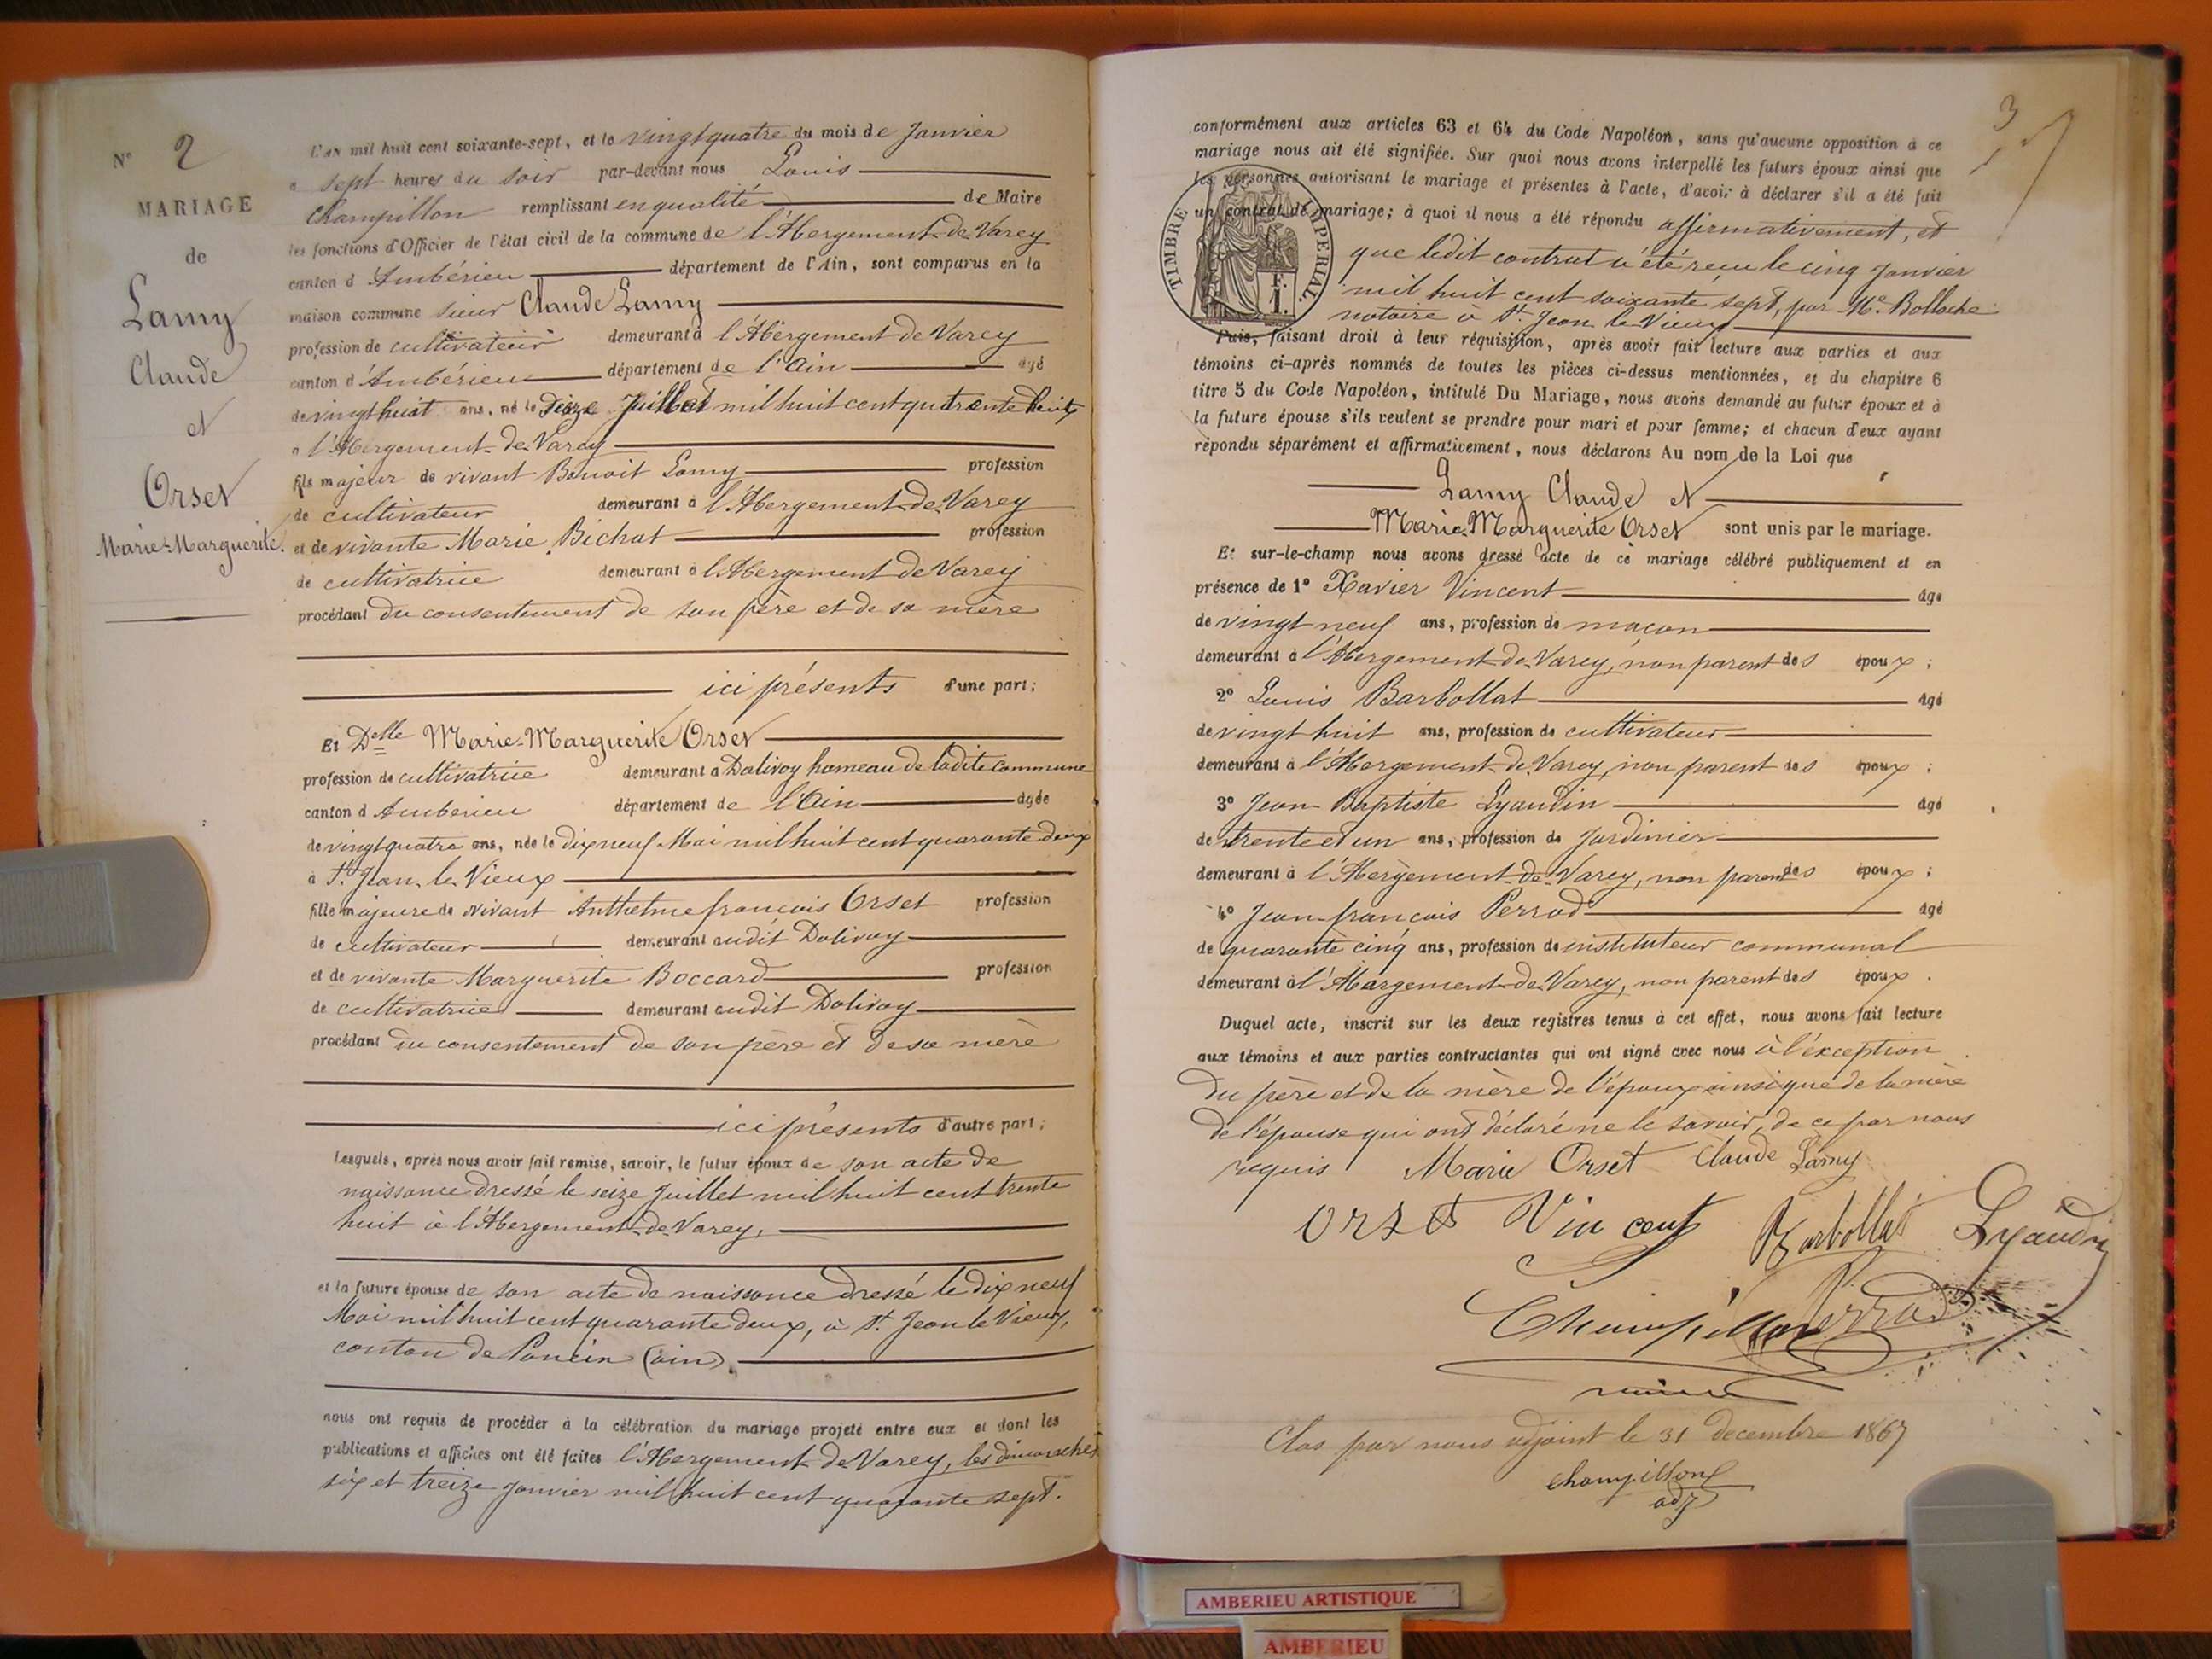 N° 2
MARIAGE
de
Lamy
Claude
et
Orset
Marie-Marguerite.
L'an mil huit cent soixante-sept, et le vingt quatre du mois de Janvier
à sept heures du soir par-devant nous Louis
Champillon remplissant en qualité de Maire
les fonctions d'Officier de l'état civil de la commune de l'Abergement-de-Varey
canton d'Ambérieu département de l'Ain, sont comparus en la
maison commune sieur Claude Lamy
profession de cultivateur demeurant à l'Abergement de Varey
canton d'Ambérieu département de l'Ain âgé
de vingt huit ans, né le Seize Juillet mil huit cent trente huit
à l'Abergement-de-Varey
fils majeur de vivant Benoit Lamy profession
de cultivateur demeurant à l'Abergement-de-Varey
et de vivante Marie Bichat profession
de cultivatrice demeurant à l'Abergement de Varey
procédant du consentement de son père et de sa mère
ici présents d'une part;
Et Delle Marie-Marguerite Orset
profession de cultivatrice demeurant à Dalivoy hameau de ladite commune
canton d'Ambérieu département de l'Ain âgée
de vingt quatre ans, née le dix neuf Mai mil huit cent quarante deux
à St. Jean-le-Vieux
fille majeure de vivant Anthelme françois Orset profession
de cultivateur demeurant audit Dalivoy
et de vivante Marguerite Boccard profession
de cultivatrice demeurant audit Dalivoy
procédant du consentement de son père et de sa mère
ici présents d'autre part;
Lesquels, après nous avoir fait remise, savoir, le futur époux de son acte de
naissance dressé le seize Juillet mil huit cent trente
huit à l'Abergement-de-Varey,
et la future épouse de son acte de naissance dressé le dix neuf
Mai mil huit cent quarante deux, à St. Jean le Vieux,
canton de Poncin (ain).
nous ont requis de procéder à la célébration du mariage projeté entre eux et dont les
publications et affiches ont été faites l'Abergement-de-Varey, les dimanches
six et treize janvier mil huit cent quarante sept.
3
conformément aux articles 63 et 64 du Code Napoléon, sans qu'aucune opposition à ce
mariage nous ait été signifiée. Sur quoi nous avons interpellé les futurs époux ainsi que
les personnes autorisant le mariage et présentes à l'acte, d'avoir à déclarer s'il a été fait
un contrat de mariage; à quoi il nous a été répondu affirmativement, et
que ledit contrat a été reçu le cinq Janvier
mil huit cent soixante sept, par Me. Bolloche
notaire à St. Jean le Vieux
TIMBRE IMPERIAL.
1 F.
Puis, faisant droit à leur réquisition, après avoir fait lecture aux parties et aux
témoins ci-après nommés de toutes les pièces ci-dessus mentionnées, et du chapitre 6
titre 5 du Code Napoléon, intitulé Du Mariage, nous avons demandé au futur époux et à
la future épouse s'ils veulent se prendre pour mari et pour femme; et chacun d'eux ayant
répondu séparément et affirmativement, nous déclarons Au nom de la Loi que
Lamy Claude et
Marie-Marguerite Orset sont unis par le mariage.
Et sur-le-champ nous avons dressé acte de ce mariage célébré publiquement et en
présence de 1° Xavier Vincent âgé
de vingt neuf ans, profession de maçon
demeurant à l'Abergement-de-Varey, non parent des époux;
2° Louis Barbollat âgé
de vingt huit ans, profession de cultivateur
demeurant à l'Abergement-de-Varey, non parent des époux;
3° Jean-Baptiste Lyaudin âgé
de trente et un ans, profession de Jardinier
demeurant à l'Abergement-de-Varey, non parent des époux;
4° Jean-françois Perrod âgé
de quarante cinq ans, profession de instituteur communal
demeurant à l'Abergement-de-Varey, non parent des époux.
Duquel acte, inscrit sur les deux registres tenus à cet effet, nous avons fait lecture
aux témoins et aux parties contractantes qui ont signé avec nous à l'exception
du père et de la mère de l'époux ainsi que de la mère
de l'épouse qui ont déclaré ne le savoir, de ce par nous
requis Marie Orset Claude Lamy
orset Vincent Barbollat Lyaudin
Champillon Perrod
maire
Clos par nous adjoint le 31 decembre 1867
Champillon
adj
AMBERIEU ARTISTIQUE
AMBERIEU